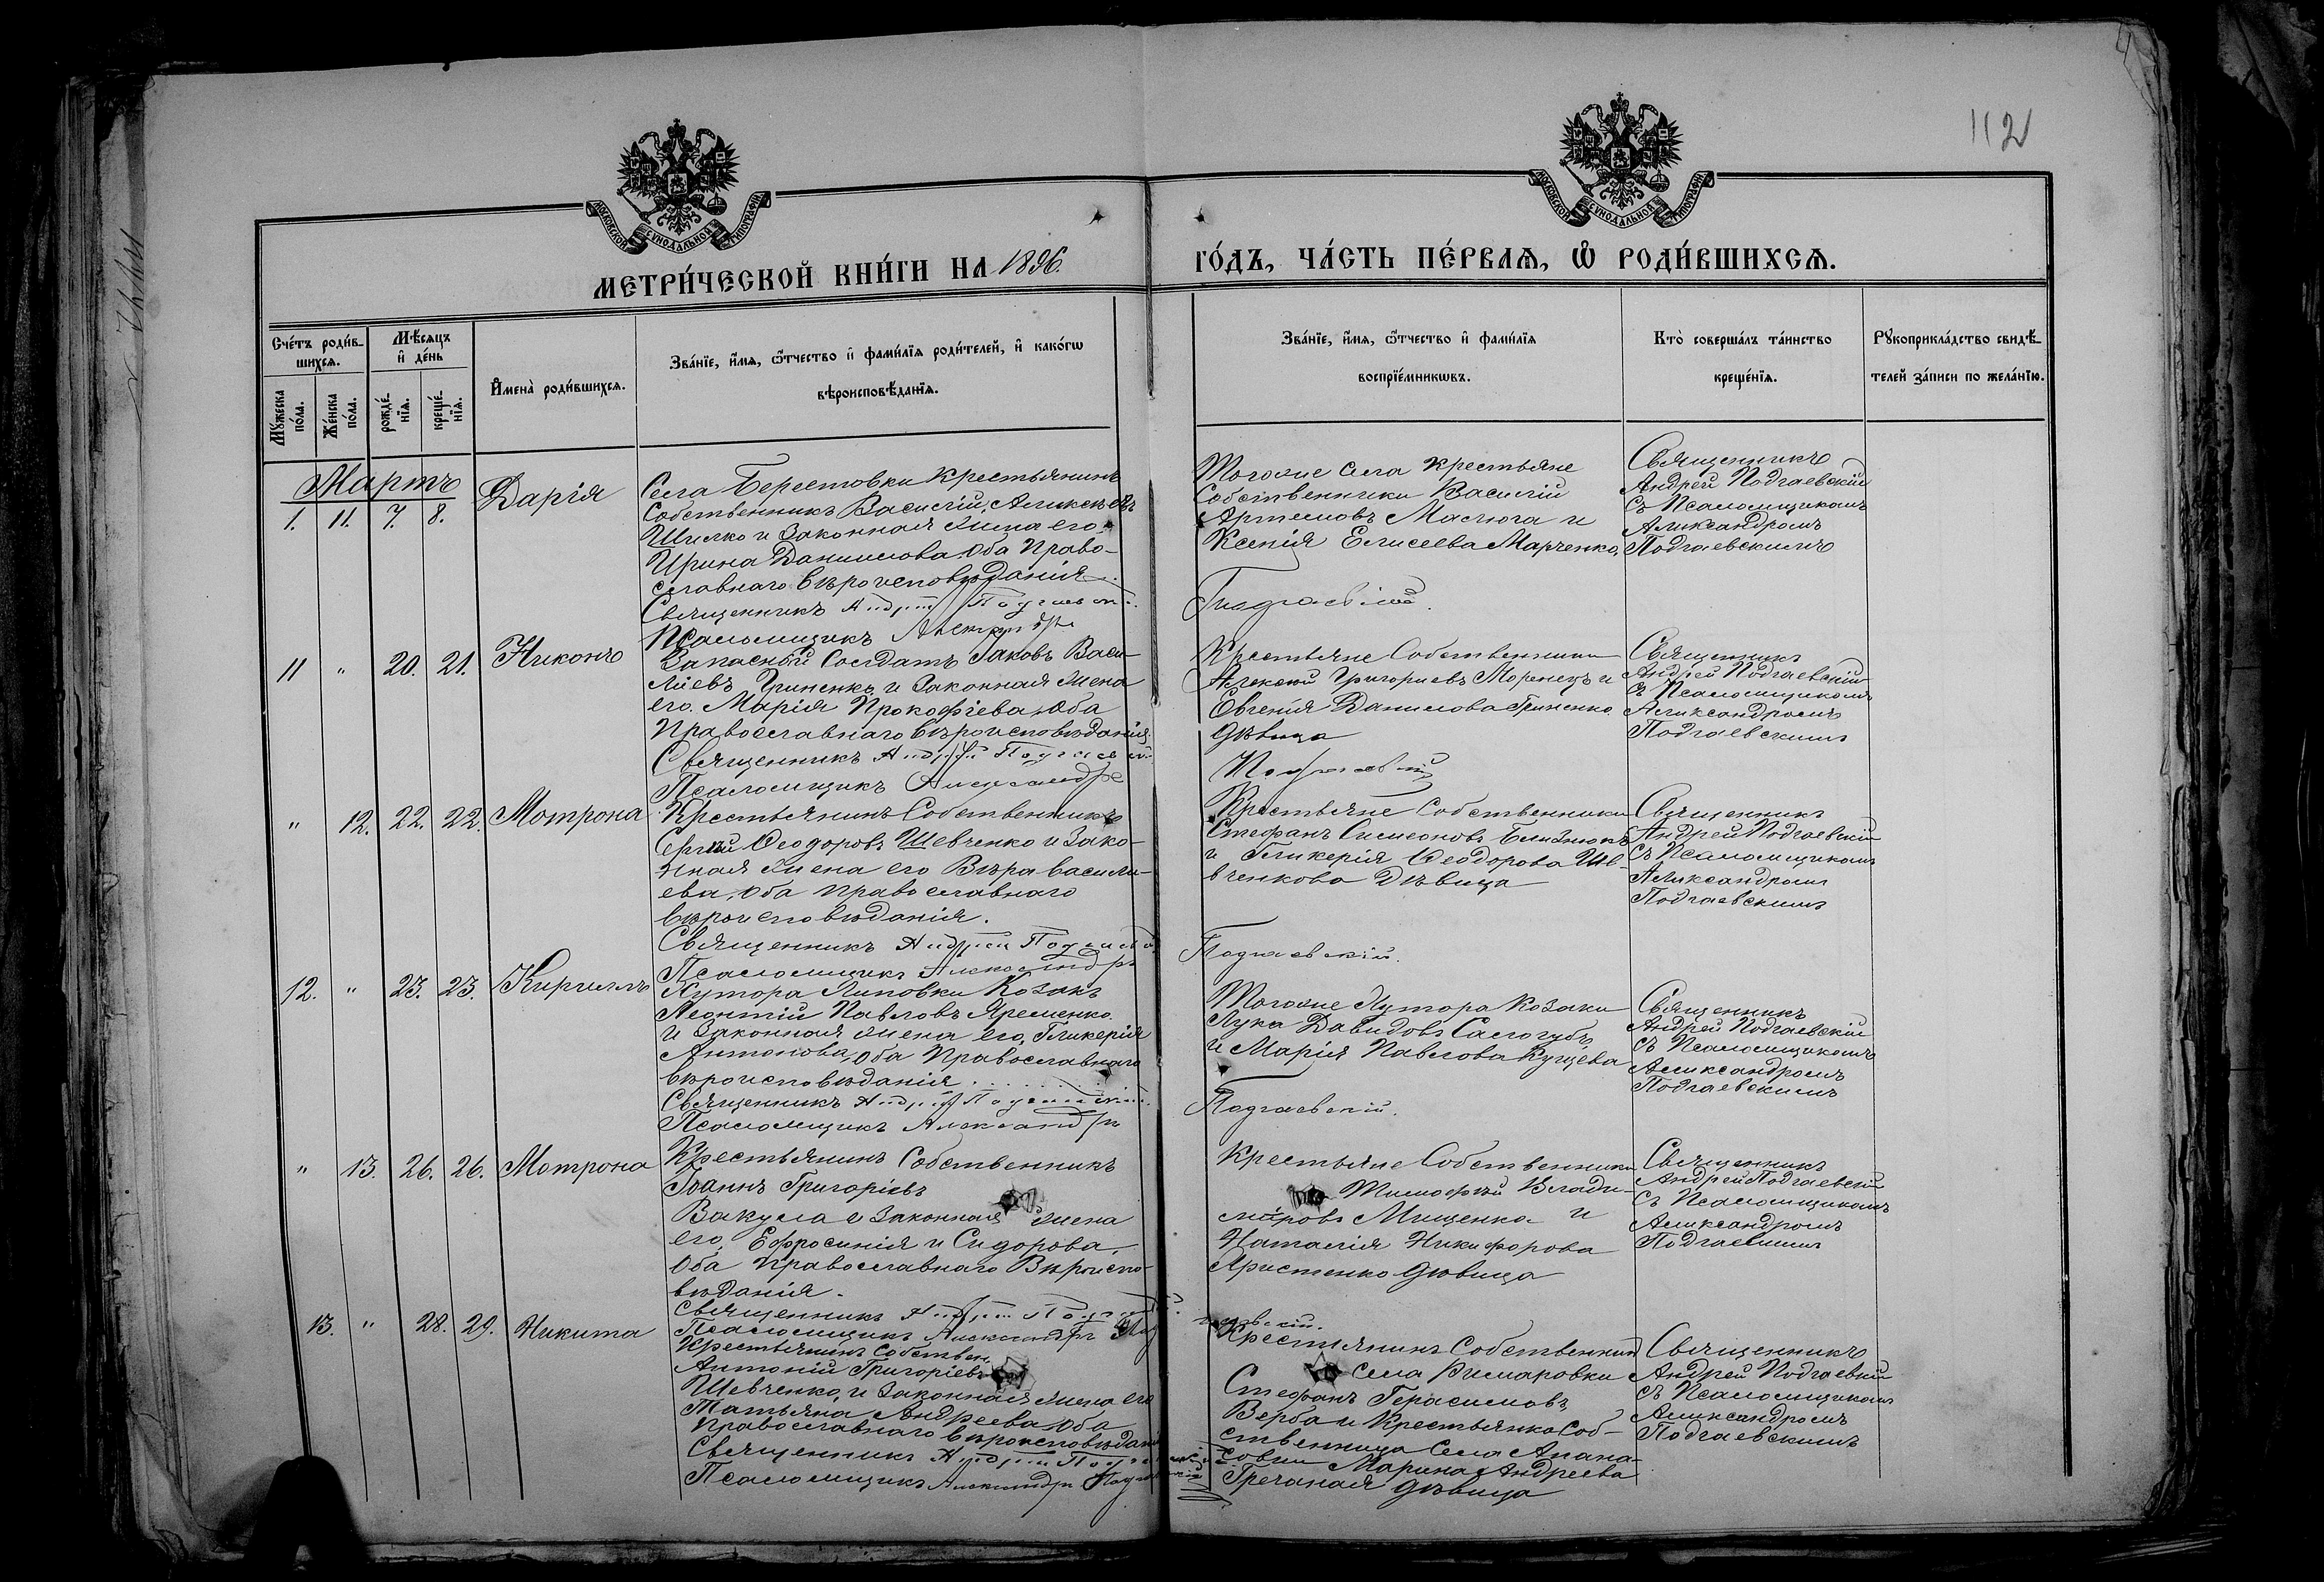 112
МОСКОВСКОЙ СѴНОДАЛЬНОЙ ТИПОГРАФІИ
МОСКОВСКОЙ СѴНОДАЛЬНОЙ ТИПОГРАФІИ
МЕТРИ́ЧЕСКОЙ КНИ́ГИ НА 1896.
ГО́ДЪ, ЧА́СТЬ ПЕ́РВАѦ, Ѡ҆ РОДИ́ВШИХСѦ.
Сче́тъ роди́в-
шихсѧ.
Мꙋ́жеска по́ла.
Же́нска по́ла.
Мѣ́сѧцъ и҆ де́нь
рожде́-нїѧ.
креще́-нїѧ.
И҆мена̀ роди́вшихсѧ.
Зва́нїе, и҆́мѧ, ѻ҆́тчество и҆ фами́лїѧ роди́телей, и҆ како́гѡ
вѣроисповѣ́данїѧ.
Зва́нїе, и҆́мѧ, ѻ҆́тчество и҆ фами́лїѧ
воспрїе́мникѡвъ.
Кто̀ соверша́лъ та́инство
креще́нїѧ.
Рꙋкоприкла́дство свидѣ́-
телей за́писи по жела́нїю.
Мартъ
1. 11. 7. 8. Дарія
Села Берестовки Крестьянинъ
Собственникъ Василій Алексѣевъ
Шилко и Законная Жена его
Ирина Даниилова, Оба Право-
славнаго Вѣроисповѣданія.
Священникъ Андрей Подгаевскій
Псаломщикъ Александръ
Тогоже Села Крестьяне
Собственники Василій
Артемовъ Маслюга и
Ксенія Елисеева Марченко.
Подгаевскій.
Священникъ
Андрей Подгаевскій
съ Псаломщикомъ
Александромъ
Подгаевскимъ
11 " 20. 21. Никонъ
Запасный Солдатъ Іаковъ Васи-
ліевъ Гриненко и Законная Жена
его Марія Прокофіева, Оба
Православнаго Вѣроисповѣданія.
Священникъ Андрей Подгаевскій
Псаломщикъ Александръ
Крестьяне Собственники
Алексій Григорьевъ Моренецъ и
Евгенія Данилова Гриненко
дѣвица
Подгаевскій
Священникъ
Андрей Подгаевскій
съ Псаломщикомъ
Александромъ
Подгаевскимъ
" 12. 22. 22. Мотрона
Крестьянинъ Собственникъ
Сергій Ѳеодоровъ Шевченко и Зако-
нная Жена его Вѣра Васили-
ева, Оба Православнаго
Вѣроисповѣданія.
Священникъ Андрей Подгаевскій
Псаломщикъ Александръ
Крестьяне Собственники
Стефанъ Симеоновъ Близнюкъ
и Гликерія Ѳеодорова Ше-
вченкова Дѣвица
Подгаевскій.
Священникъ
Андрей Подгаевскій
съ Псаломщикомъ
Александромъ
Подгаевскимъ
12. " 23. 23. Кириллъ
Хутора Липовки Козакъ
Леонтій Павловъ Яременко
и Законная Жена его, Гликерія
Антонова, Оба Православнаго
Вѣроисповѣданія.
Священникъ Андрей Подгаевскій
Псаломщикъ Александръ
Тогоже Хутора Козаки
Лука Давидовъ Самогубъ
и Марія Павлова Куцева
Подгаевскій.
Священникъ
Андрей Подгаевскій
съ Псаломщикомъ
Александромъ
Подгаевскимъ
" 13. 26. 26. Мотрона
Крестьянинъ Собственникъ
Іоаннъ Григоріевъ
Вакула и Законная Жена
его, Ефросинія и Сидорова,
Оба Православнаго Вѣроиспо-
вѣданія.
Священникъ Андрей
Псаломщикъ Александръ Подгаевскій.
Крестьяне Собственники
Тимофѣй Влади-
міровъ Мищенко и
Наталія Никифорова
Яристенко дѣвица
Священникъ
Андрей Подгаевскій
съ Псаломщикомъ
Александромъ
Подгаевскимъ
13. " 28. 29. Никита
Крестьянинъ Собствен.
Антоній Григоріевъ
Шевченко, и Законная Жена его
Татьяна Андреева, Оба
Православнаго Вѣроисповѣданія
Священникъ Андрей Подгаевскій
Псаломщикъ Александръ Подгаевскій
Крестьянинъ Собственникъ
Села Римаровки
Стефанъ Герасимовъ
Верба и Крестьянка Соб-
ственница Села Апана-
совки Марина Андреева
Гречаная дѣвица
Священникъ
Андрей Подгаевскій
съ Псаломщикомъ
Александромъ
Подгаевскимъ